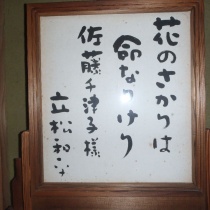 花のさかりは
命なりけり
佐藤千津子様
立松和平